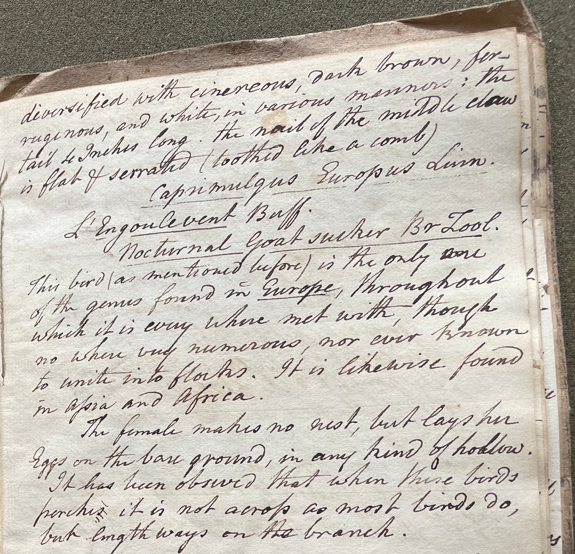 diversified with cinereous, dark brown, fer-
ruginous, and white, in various manners: the
tail 4 Inches long. the nail of the middle claw
is flat & serrated (toothed like a comb)
Caprimulgus Europus Linn.
L'Engoulevent Buff.
Nocturnal Goat sucker Br Zool.
This bird (as mentioned before) is the only one
of the genus found in Europe, throughout
which it is every where met with, though
no where very numerous, nor ever known
to unite into flocks. It is likewise found
in Asia and Africa.
The female makes no nest, but lays her
Eggs on the bare ground, in any kind of hollow.
It has been observed that when these birds
perches it is not across as most birds do,
but lengthways on the branch.